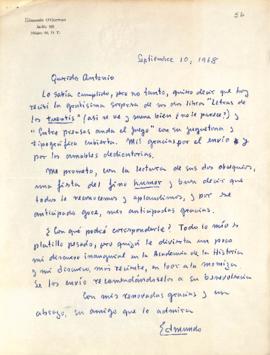 Edmundo O'Gorman
56
Septiembre 10, 1968
Querido Antonio
Lo sabía cumplido, pero no tanto, quiero decir que hoy
recibí la gratísima sorpresa de sus dos libros "Letras de
los tuentis" (así se ve y suena bien ¿no le parece?) y
"Entre prensas anda el juego" con su juguetona y
tipográfica cubierta. Mil gracias por el envío y
por las amables dedicatorias.
Me prometo, con la lectura de sus dos obsequios,
una fiesta del fino humor y buen decir que
todos le reconocemos y aplaudimos, y por ese
anticipado goce, mis anticipadas gracias.
¿Con qué podré corresponderle? Todo lo mío es
platillo pesado, pero quizá le divierta un poco
mi discurso inaugural en la Academia de la Historia
y mi discurso, más reciente, en loor a la momiza
Se los envío recomendándoselos a su benevolencia
Con mis renovadas gracias y un
abrazo, su amigo que lo admira
Edmundo